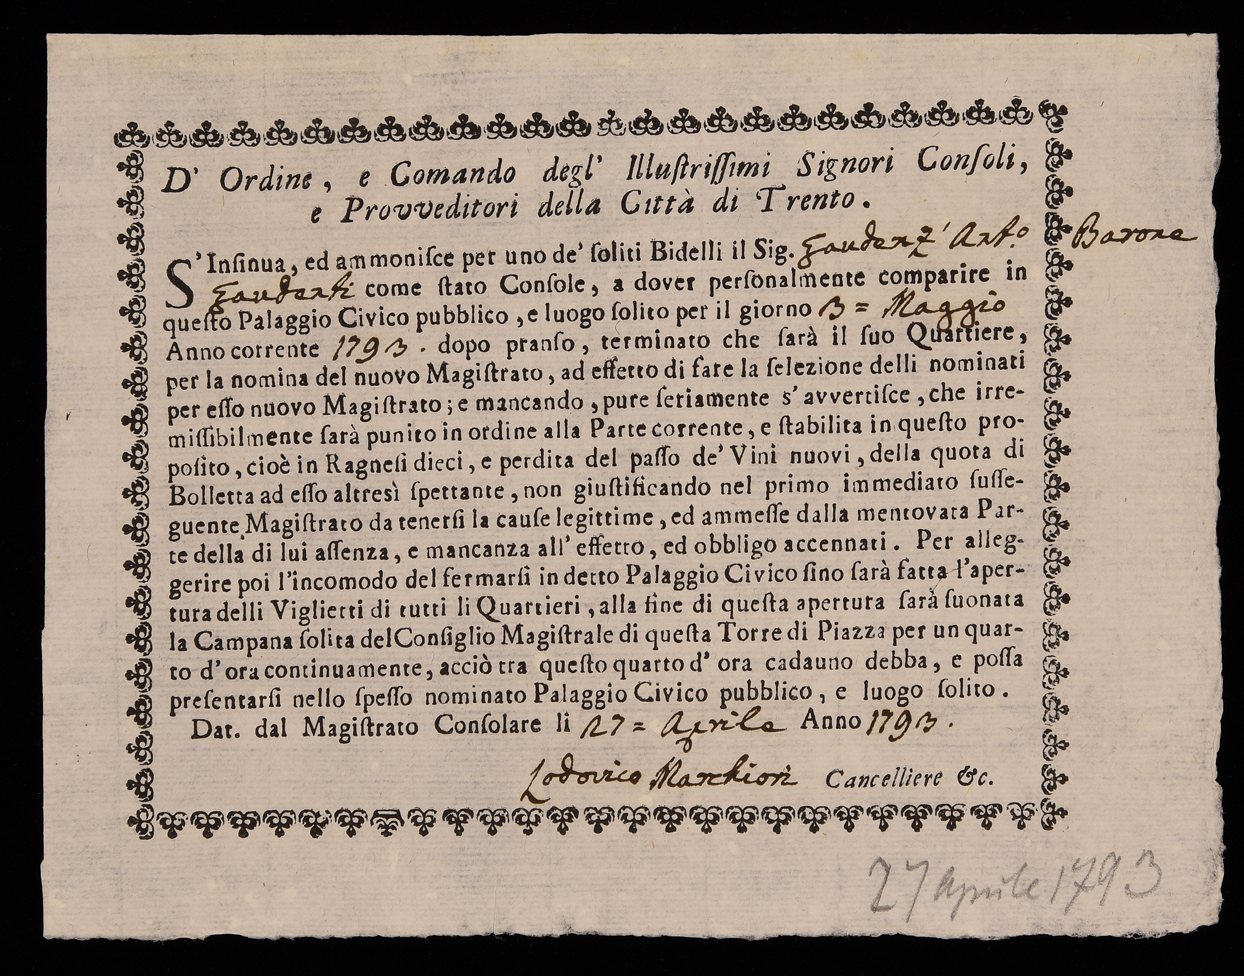 D' Ordine, e Comando degl' Illuſtriſſimi Signori Conſoli,
e Provveditori della Città di Trento.
S'Inſinua, ed ammoniſce per uno de' ſoliti Bidelli il Sig. Gaudenz' Ant.o Barone
Gaudenti come ſtato Conſole, a dover perſonalmente comparire in
queſto Palaggio Civico pubblico, e luogo ſolito per il giorno 3 = Maggio
Anno corrente 1793. dopo pranſo, terminato che ſarà il ſuo Quartiere,
per la nomina del nuovo Magiſtrato, ad effetto di fare la ſelezione delli nominati
per eſſo nuovo Magiſtrato; e mancando, pure ſeriamente s'avvertiſce, che irre-
miſſibilmente ſarà punito in ordine alla Parte corrente, e ſtabilita in queſto pro-
poſito, cioè in Ragneſi dieci, e perdita del paſſo de' Vini nuovi, della quota di
Bolletta ad eſſo altresì ſpettante, non giuſtificando nel primo immediato ſuſſe-
guente Magiſtrato da tenerſi la cauſe legittime, ed ammeſſe dalla mentovata Par-
te della di lui aſſenza, e mancanza all' effetto, ed obbligo accennati. Per alleg-
gerire poi l'incomodo del fermarſi in detto Palaggio Civico ſino ſarà fatta l'aper-
tura delli Viglietti di tutti li Quartieri, alla fine di queſta apertura ſarà ſuonata
la Campana ſolita del Conſiglio Magiſtrale di queſta Torre di Piazza per un quar-
to d'ora continuamente, acciò tra queſto quarto d' ora cadauno debba, e poſſa
preſentarſi nello ſpeſſo nominato Palaggio Civico pubblico, e luogo ſolito.
Dat. dal Magiſtrato Conſolare li 27 = Aprile Anno 1793.
Lodovico Marchiori Cancelliere &c.
27 Aprile 1793